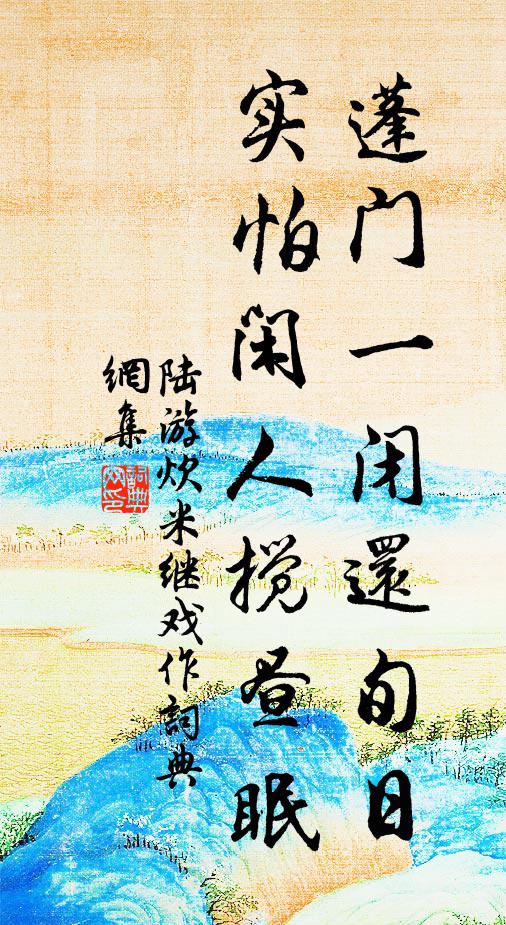 蓬门一闭還旬日
实怕闲人搅昼眠
陆游炊米继戏作詞典
網集